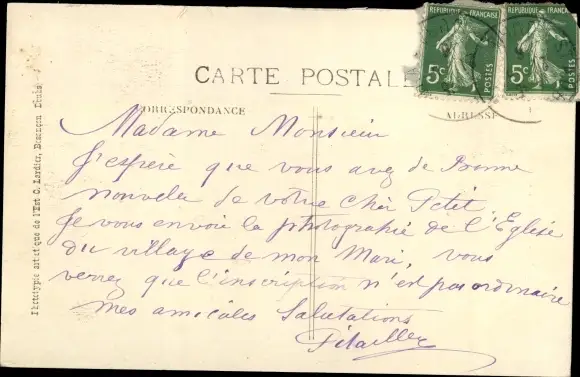 RÉPUBLIQUE FRANÇAISE
5c POSTES
RÉPUBLIQUE FRANÇAISE
5c POSTES
CARTE POSTALE
CORRESPONDANCE
ADRESSE
Madame Monsieur
J'espère que vous avez de Bonne
nouvelle de votre cher Petit.
Je vous envoie la photographie de l'Eglise
du village de mon Mari, vous
verrez que l'inscription n'est pas ordinaire
mes amicales Salutations
Phototypie artistique de l'Est C. Lardier, Besançon Doubs